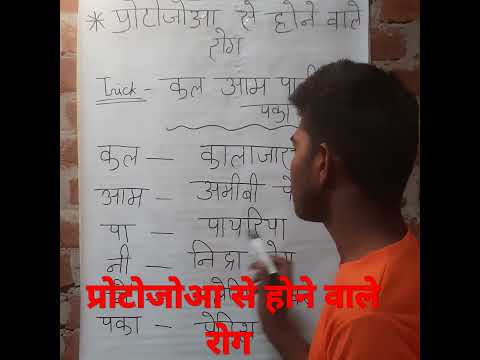 * प्रोटोजोआ से होने वाले
रोग
Trick - कुल आम
पका
कुल - कालाजार
आम - अमीबी
पा - पायरिया
नी - निद्रा
प्रोटोजोआ से होने वाले
रोग
पका -